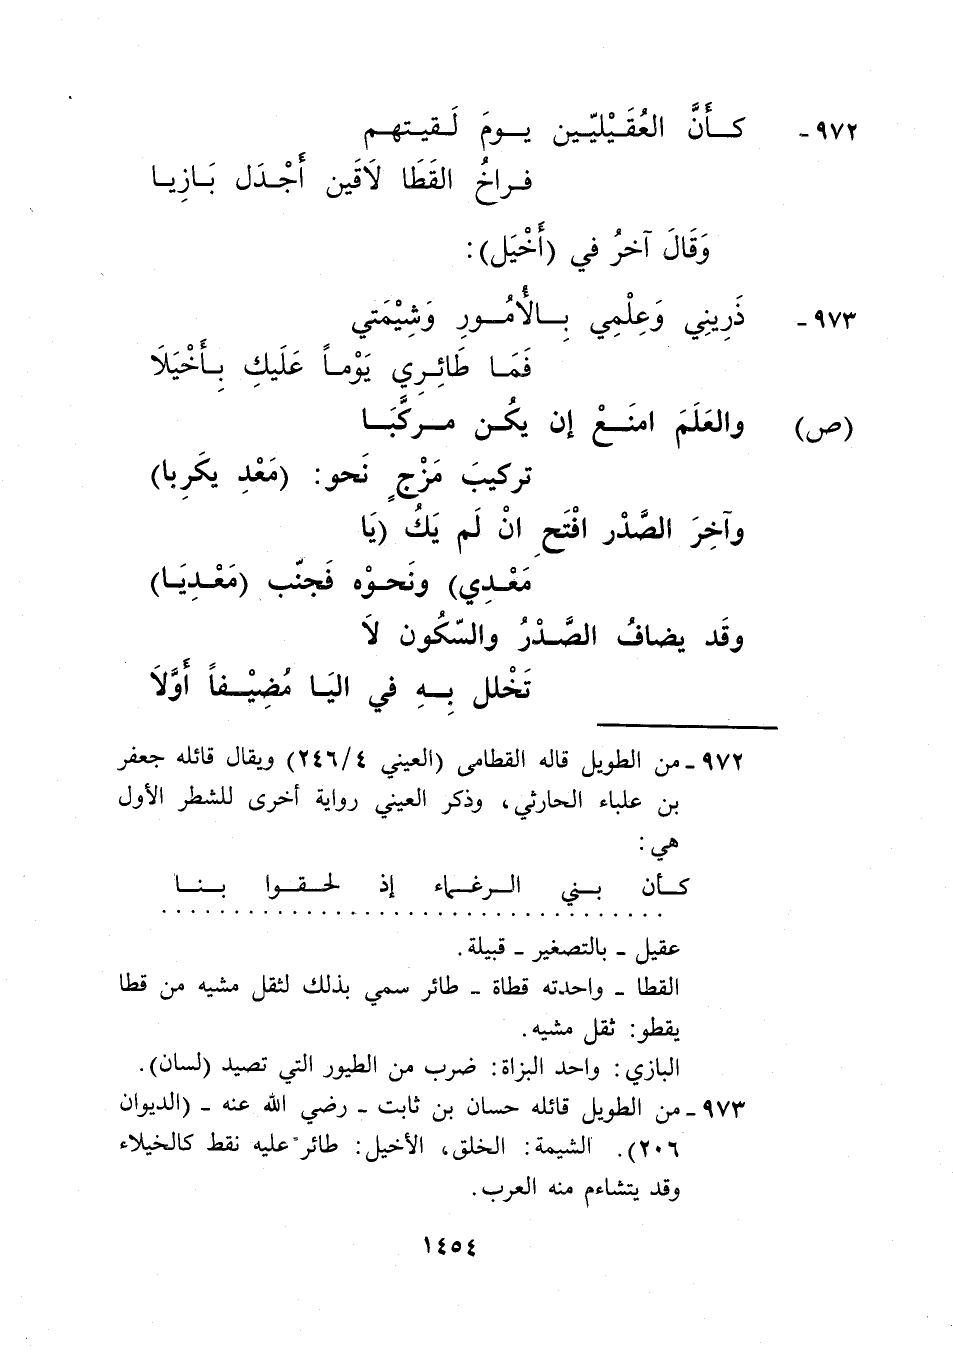 ٩٧٢ - كـأَنَّ العُقَيْليّـين يـومَ لَـقيـتهـم
فـراخُ القَطَا لاَقَين أَجْـدَل بَـازِيـا
وَقَالَ آخرُ في (أَخْيَل):
٩٧٣ - ذَرِينِي وَعِلْمِي بِـالأُمُـورِ وَشِيْمَتي
فَمَـا طَائِـرِي يَوْمـاً عَلَيكِ بِـأَخْيَلَا
(ص) والعَلَمَ امنَـعْ إن يكُـن مـركَّبَـا
تركيبَ مَزْجٍ نَحو: (مَعْدِ يكَرِبا)
وآخِرَ الصَّدْر افْتَحِ انْ لَم يَكُ (يَا
مَعْـدِي) ونَحـوْه فَجنّب (مَعْـدِيَـا)
وقَد يضافُ الصَّـدْرُ والسّكُون لاَ
تَخْلل بِـهِ في اليَـا مُضِيْـفاً أَوَّلاَ
٩٧٢ - من الطويل قاله القطامى (العيني ٢٤٦/٤) ويقال قائله جعفر
بن علباء الحارثي، وذكر العيني رواية أخرى للشطر الأول
هي:
كـأن بـني الـرغـماء إذ لحـقـوا بـنـا
. . . . . . . . . . . . . . . . . . . . . . . . . . . . . . . . .
عقيل - بالتصغير - قبيلة.
القطا - واحدته قطاة - طائر سمي بذلك لثقل مشيه من قطا
يقطو: ثقل مشيه.
البازي: واحد البزاة: ضرب من الطيور التي تصيد (لسان).
٩٧٣ - من الطويل قائله حسان بن ثابت - رضي الله عنه - (الديوان
٢٠٦). الشيمة: الخلق، الأخيل: طائر عليه نقط كالخيلاء
وقد يتشاءم منه العرب.
١٤٥٤